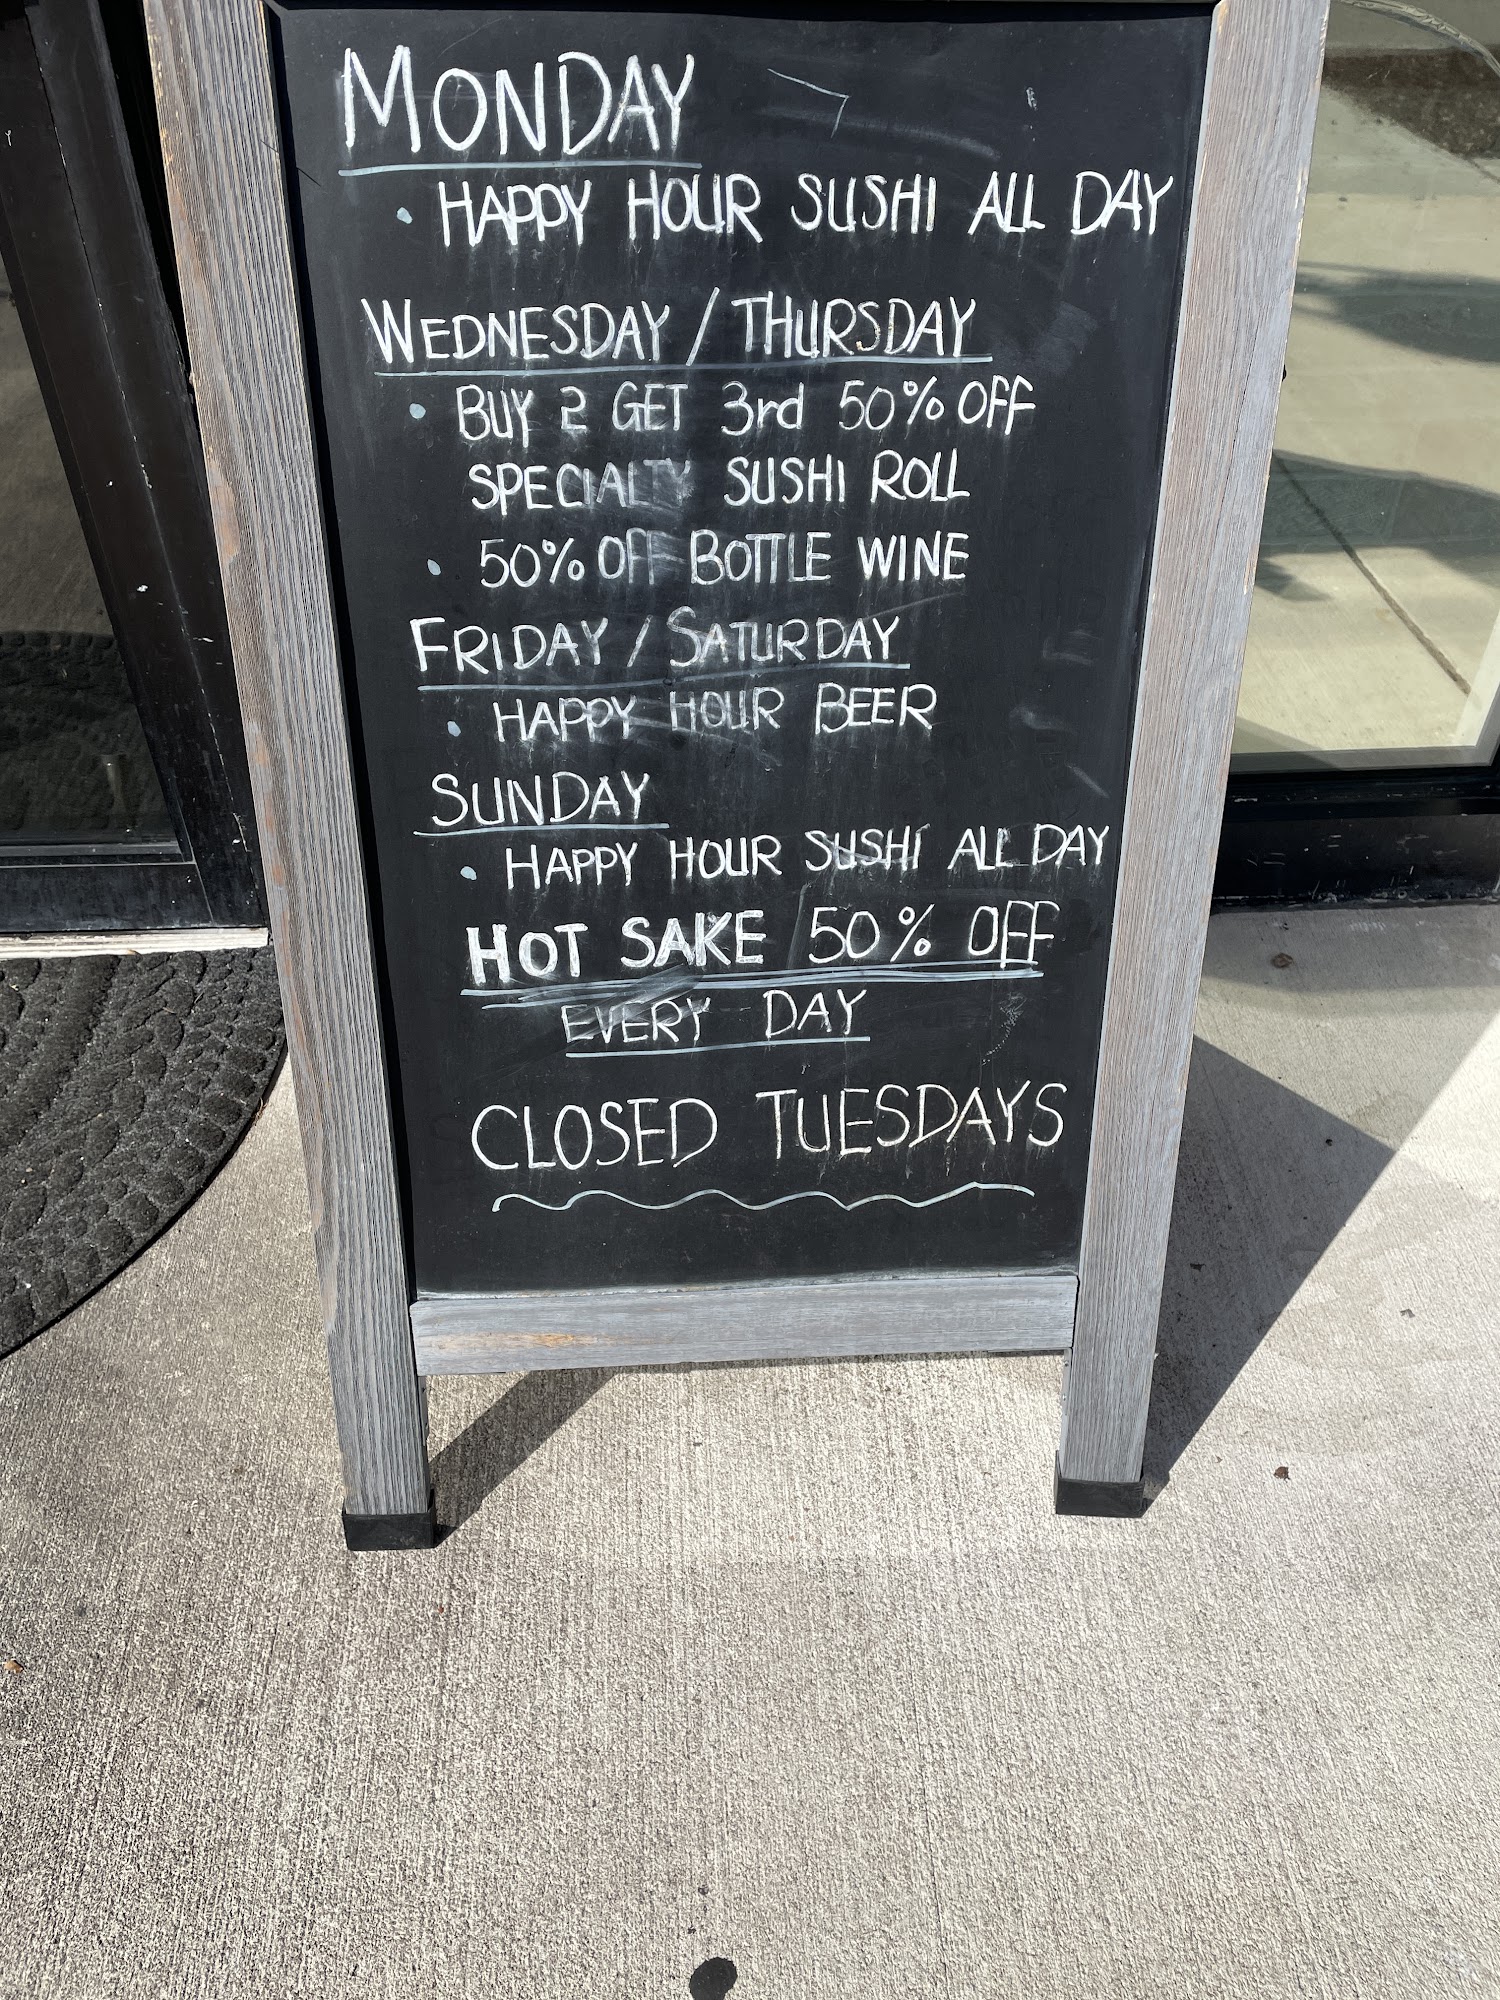 MONDAY
• HAPPY HOUR SUSHI ALL DAY
WEDNESDAY / THURSDAY
• BUY 2 GET 3rd 50% OFF
SPECIALTY SUSHI ROLL
• 50% OFF BOTTLE WINE
FRIDAY / SATURDAY
• HAPPY HOUR BEER
SUNDAY
• HAPPY HOUR SUSHI ALL DAY
HOT SAKE 50% OFF
EVERY DAY
CLOSED TUESDAYS